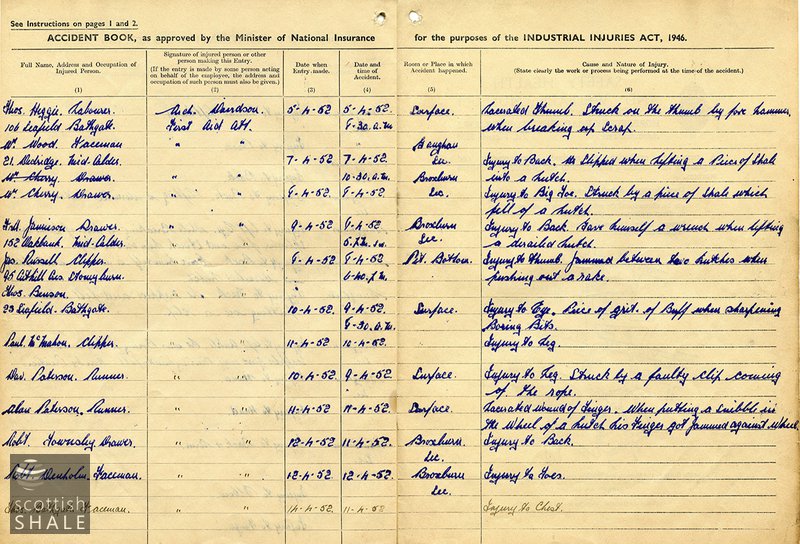 See Instructions on pages 1 and 2.
ACCIDENT BOOK, as approved by the Minister of National Insurance for the purposes of the INDUSTRIAL INJURIES ACT, 1946.
Full Name, Address and Occupation of Injured Person.
(1)
Signature of injured person or other person making this Entry.
(If the entry is made by some person acting on behalf of the employee, the address and occupation of such person must also be given.)
(2)
Date when Entry made.
(3)
Date and time of Accident.
(4)
Room or Place in which Accident happened.
(5)
Cause and Nature of Injury.
(State clearly the work or process being performed at the time of the accident.)
(6)
Thos. Heggie. Labourer. Arch. Davidson. 5-4-52 5-4-52. Surface. Lacerated Thumb. Struck on the thumb by fore hammer
106 Leafield Bathgate. First Aid Att. 8-30. a.m. when breaking up Scrap.
Wm Wood. Faceman " "
21. Mid-Calder. " " 7-4-52 7-4-52. Lee. Injury to Back. Slipped when lifting a Piece of Shale
Wm Cherry. Drawer " " 10-30. a.m. Broxburn into a hutch.
Wm Cherry. Drawer. " " 8-4-52 8-4-52. Lee. Injury to Big Toe. Struck by a piece of Shale which
fell of a hutch.
Jamieson Drawer. " " 9-4-52 8-4-52 Broxburn Injury to Back. Gave himself a wrench when lifting
152 Oakbank. Mid-Calder. " " Lee. a derailed hutch.
Jas. Russell Clipper. " " 8-4-52 8-4-52. Pit Bottom. Injury to Thumb. Jammed between two hutches when
Stoneyburn. " " 6-40. p.m. pushing out a rake.
Thos. Benson. "
23 Leafield. Bathgate. " " 10-4-52 9-4-52. Surface. Injury to Eye. Piece of grit of Buff when sharpening
8-30. a.m. Boring Bits.
Paul McMahon. Clipper. " " 11-4-52 10-4-52. Injury to Leg.
Dav. Paterson. Runner. " " 10-4-52. 9-4-52 Surface. Injury to Leg. Struck by a faulty clip coming
of the rope.
Alan Paterson. Runner. " " 11-4-52 11-4-52 Surface. Lacerated wound of Finger. When putting a Snibble in
the wheel of a hutch his finger got jammed against wheel
Robt. Townsley. Drawer. " " 12-4-52 11-4-52. Broxburn Injury to Back.
Lee.
Robt Denholm. Faceman. " " 12-4-52 12-4-52. Broxburn Injury to Toes.
Lee.
Faceman. " " 14-4-52 11-4-52 Injury to Chest.
scottish
SHALE